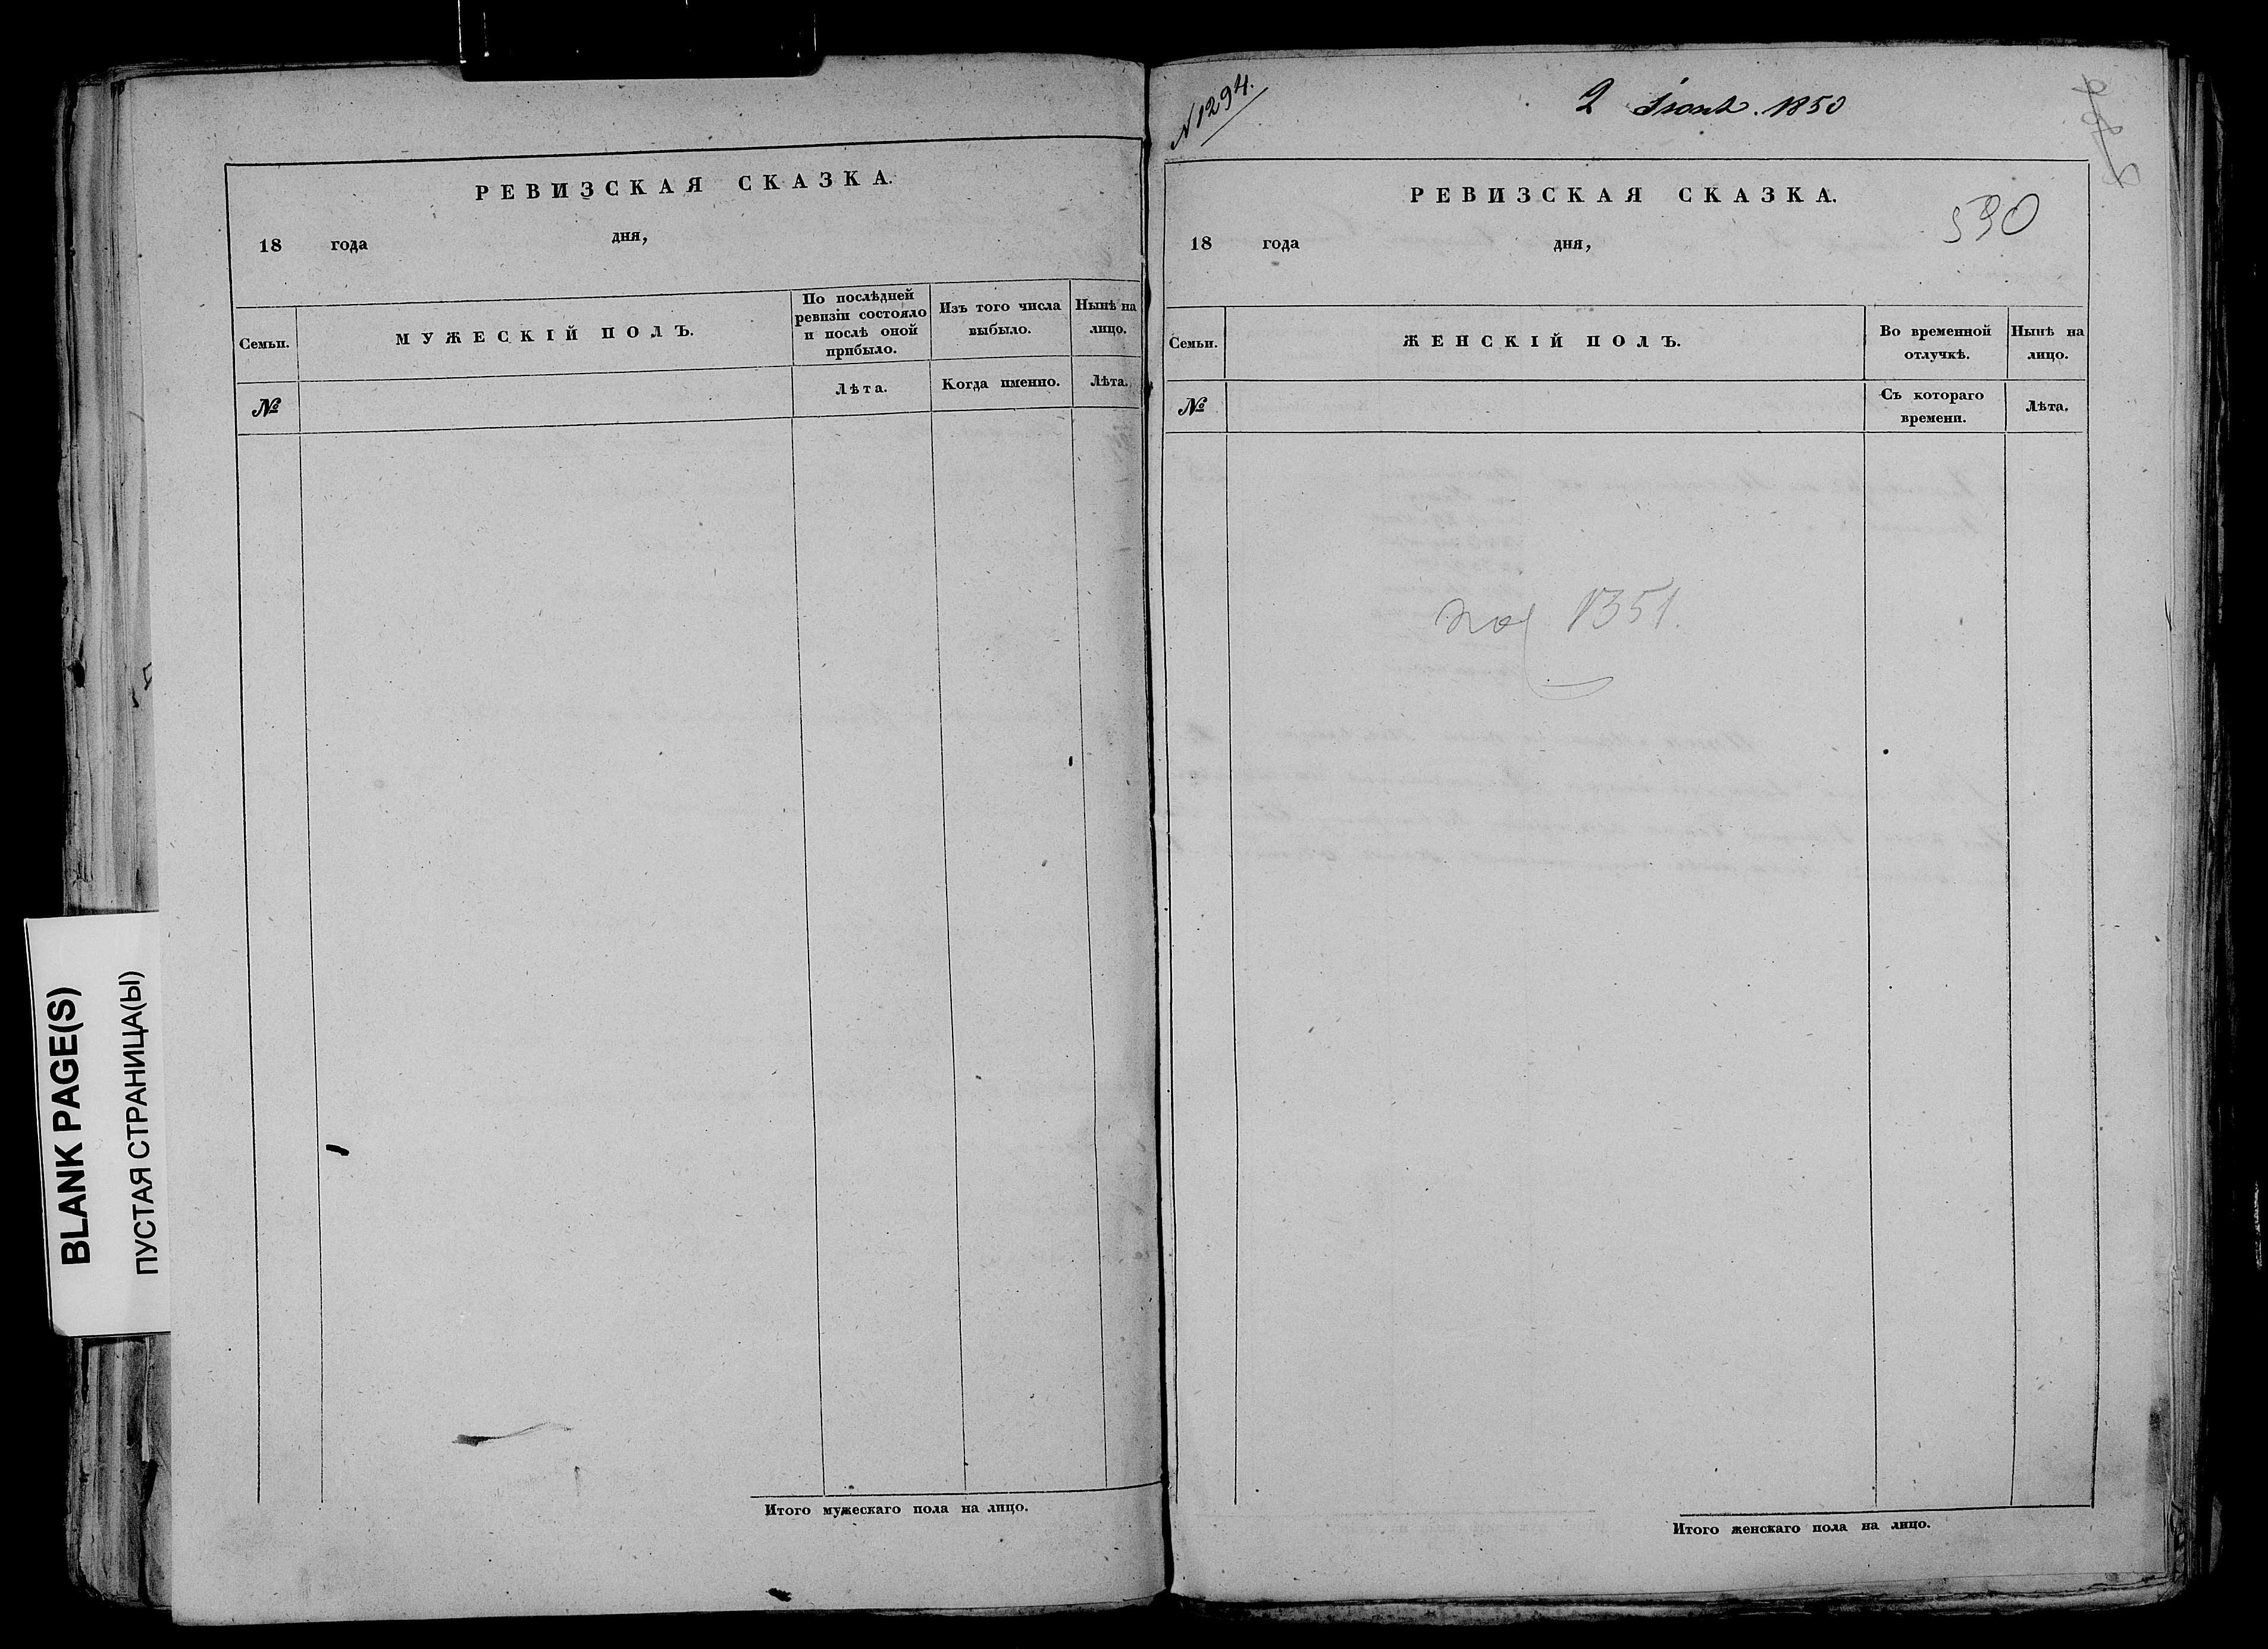 РЕВИЗСКАЯ СКАЗКА.
18 года дня,
Семьи.
МУЖЕСКІЙ ПОЛЪ.
По послѣдней
ревизіи состояло
и послѣ оной
прибыло.
Изъ того числа
выбыло.
Нынѣ на
лицо.
№
Лѣта.
Когда именно.
Лѣта.
Итого мужескаго пола на лицо.
BLANK PAGE(S)
ПУСТАЯ СТРАНИЦА(Ы)
N 1294.
2 1850
РЕВИЗСКАЯ СКАЗКА.
590
18 года дня,
Семьи.
ЖЕНСКІЙ ПОЛЪ.
Во временной
отлучкѣ.
Нынѣ на
лицо.
№
Съ котораго
времени.
Лѣта.
1351.
Итого женскаго пола на лицо.